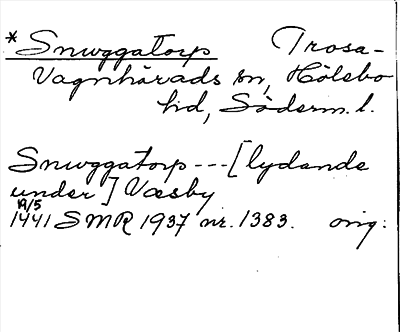 *Snuggatorp Trosa-
Vagnhärads sn, Hölebo
hd, Söderm. l.
Snuggatorp --- [lydande
under] Væsby
19/5
1441 SMR 1937 nr. 1383. orig: